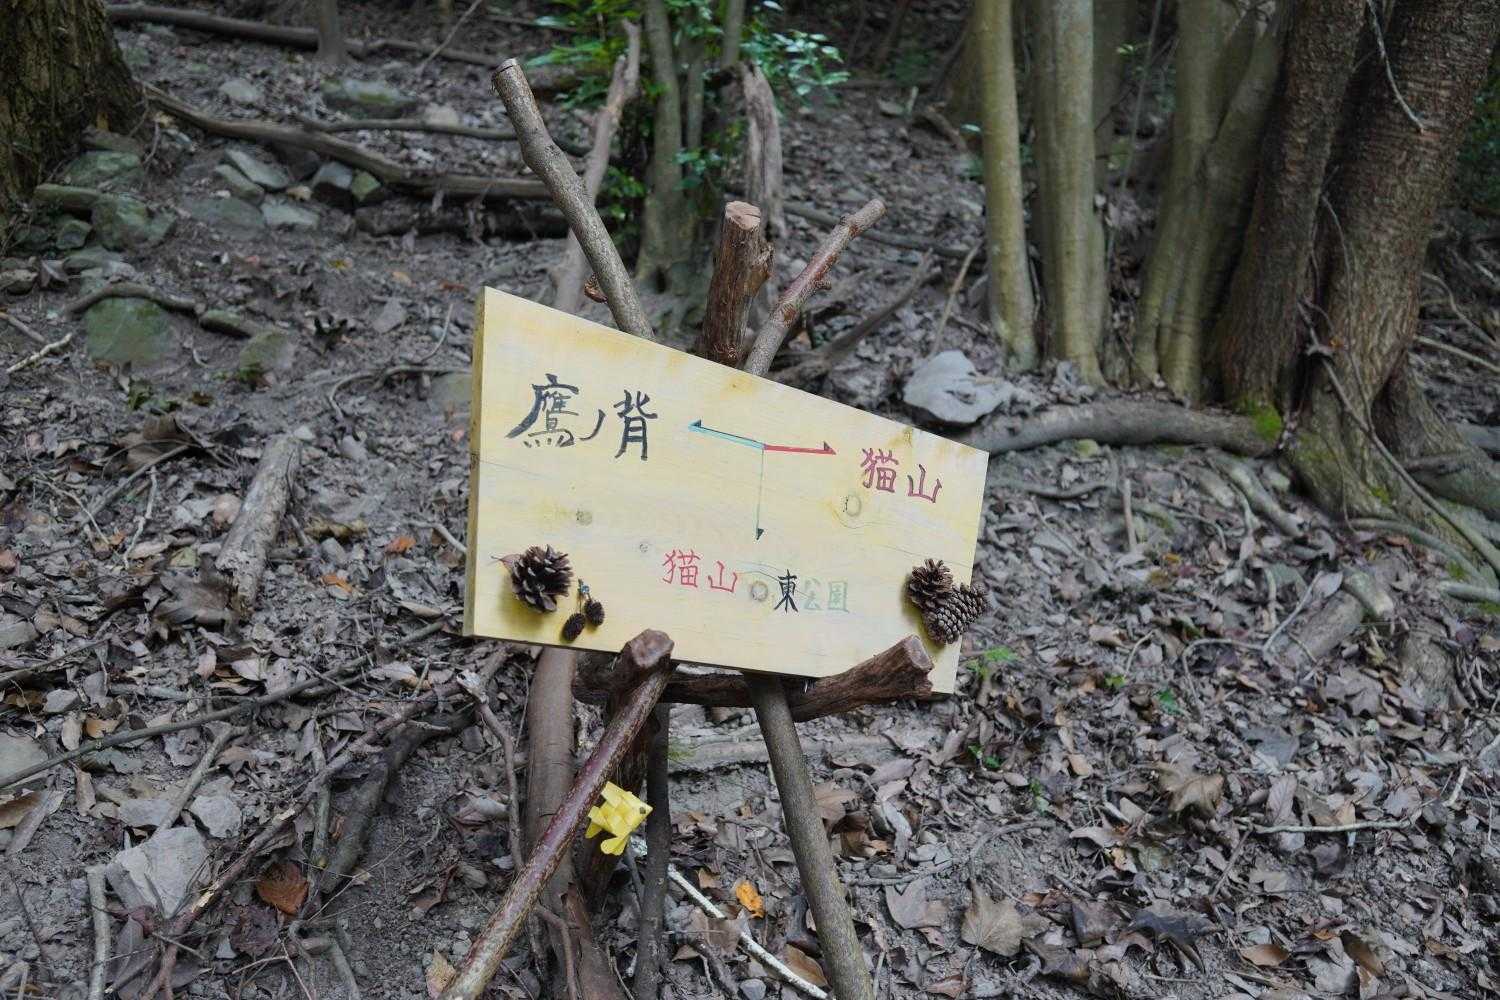 鷹ノ背
猫山
猫山 東公園